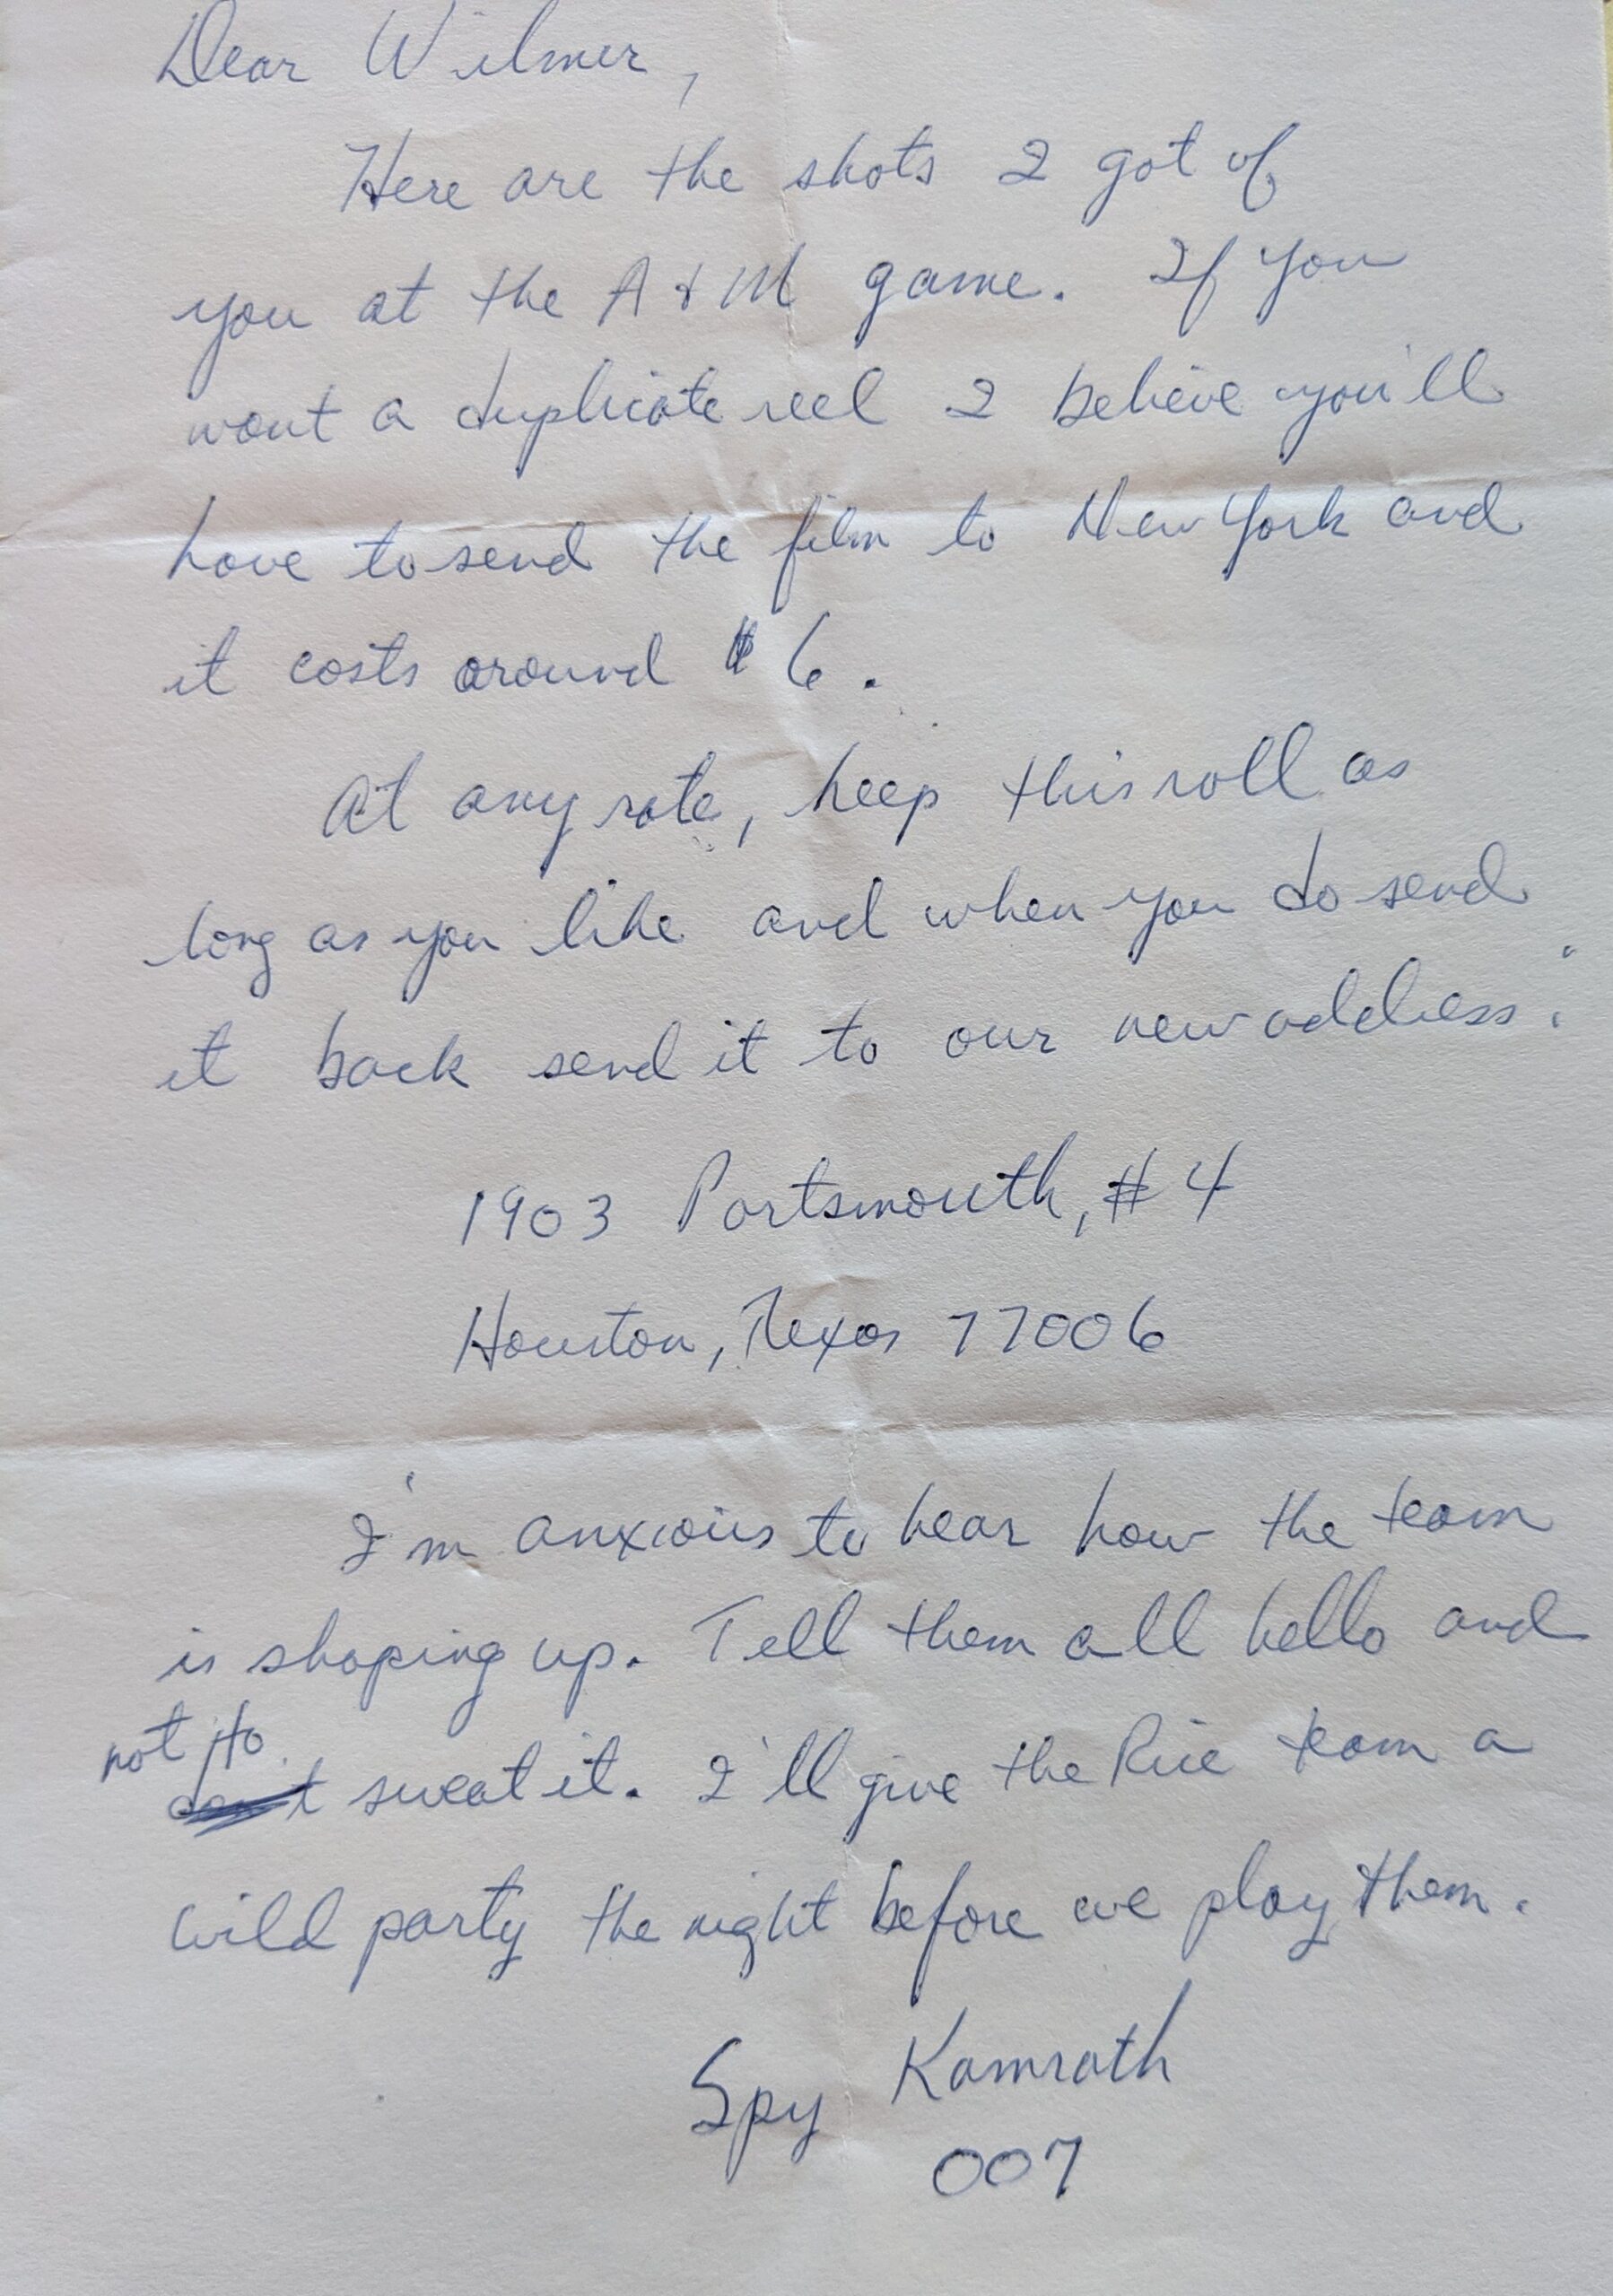 Dear Wilmer,
Here are the shots I got of
you at the A & M game. If you
want a duplicate reel I believe you'll
have to send the film to New York and
it costs around $6.
At any rate, keep this roll as
long as you like and when you do send
it back send it to our new address:
1903 Portsmouth, #4
Houston, Texas 77006
I'm anxious to hear how the team
is shaping up. Tell them all hello and
not to
sweat it. I'll give the Rice team a
wild party the night before we play them.
Spy Kamrath
007